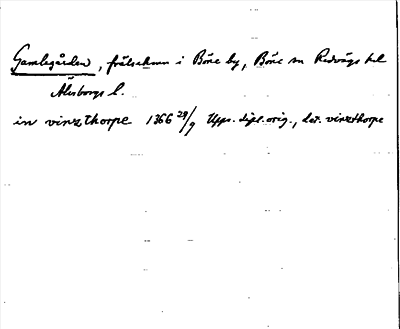 Gamlegården, frälsehmn i Böne by, Böne sn Redvägs hd
Älvsborgs l.
in vinzthorpe 1366 29/9 Upps. dipl. orig., det. vinzthorpe